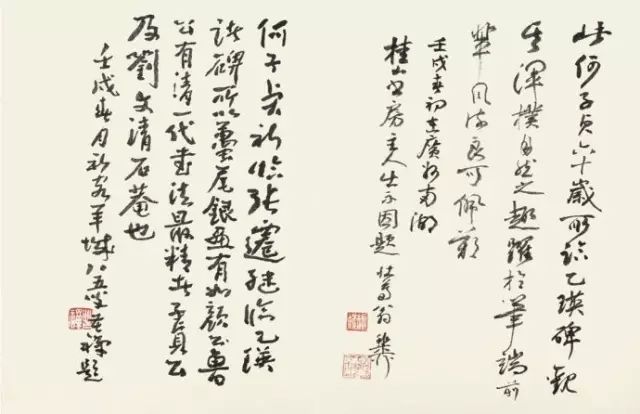 此何子貞六十歲所臨乙瑛碑觀
其渾樸自然之趣躍於筆端前
輩風流良可佩歎
壬戌春初在廣州南湖
桂山書房主人出示因題 壯暮翁 稚柳
何子貞初臨張遷繼臨乙瑛
諸碑所以蠶尾銀畫有如顏公魯
公有清一代書法最精者子貞公
及劉文清石菴也
壬戌春月初客羊城八五叟題